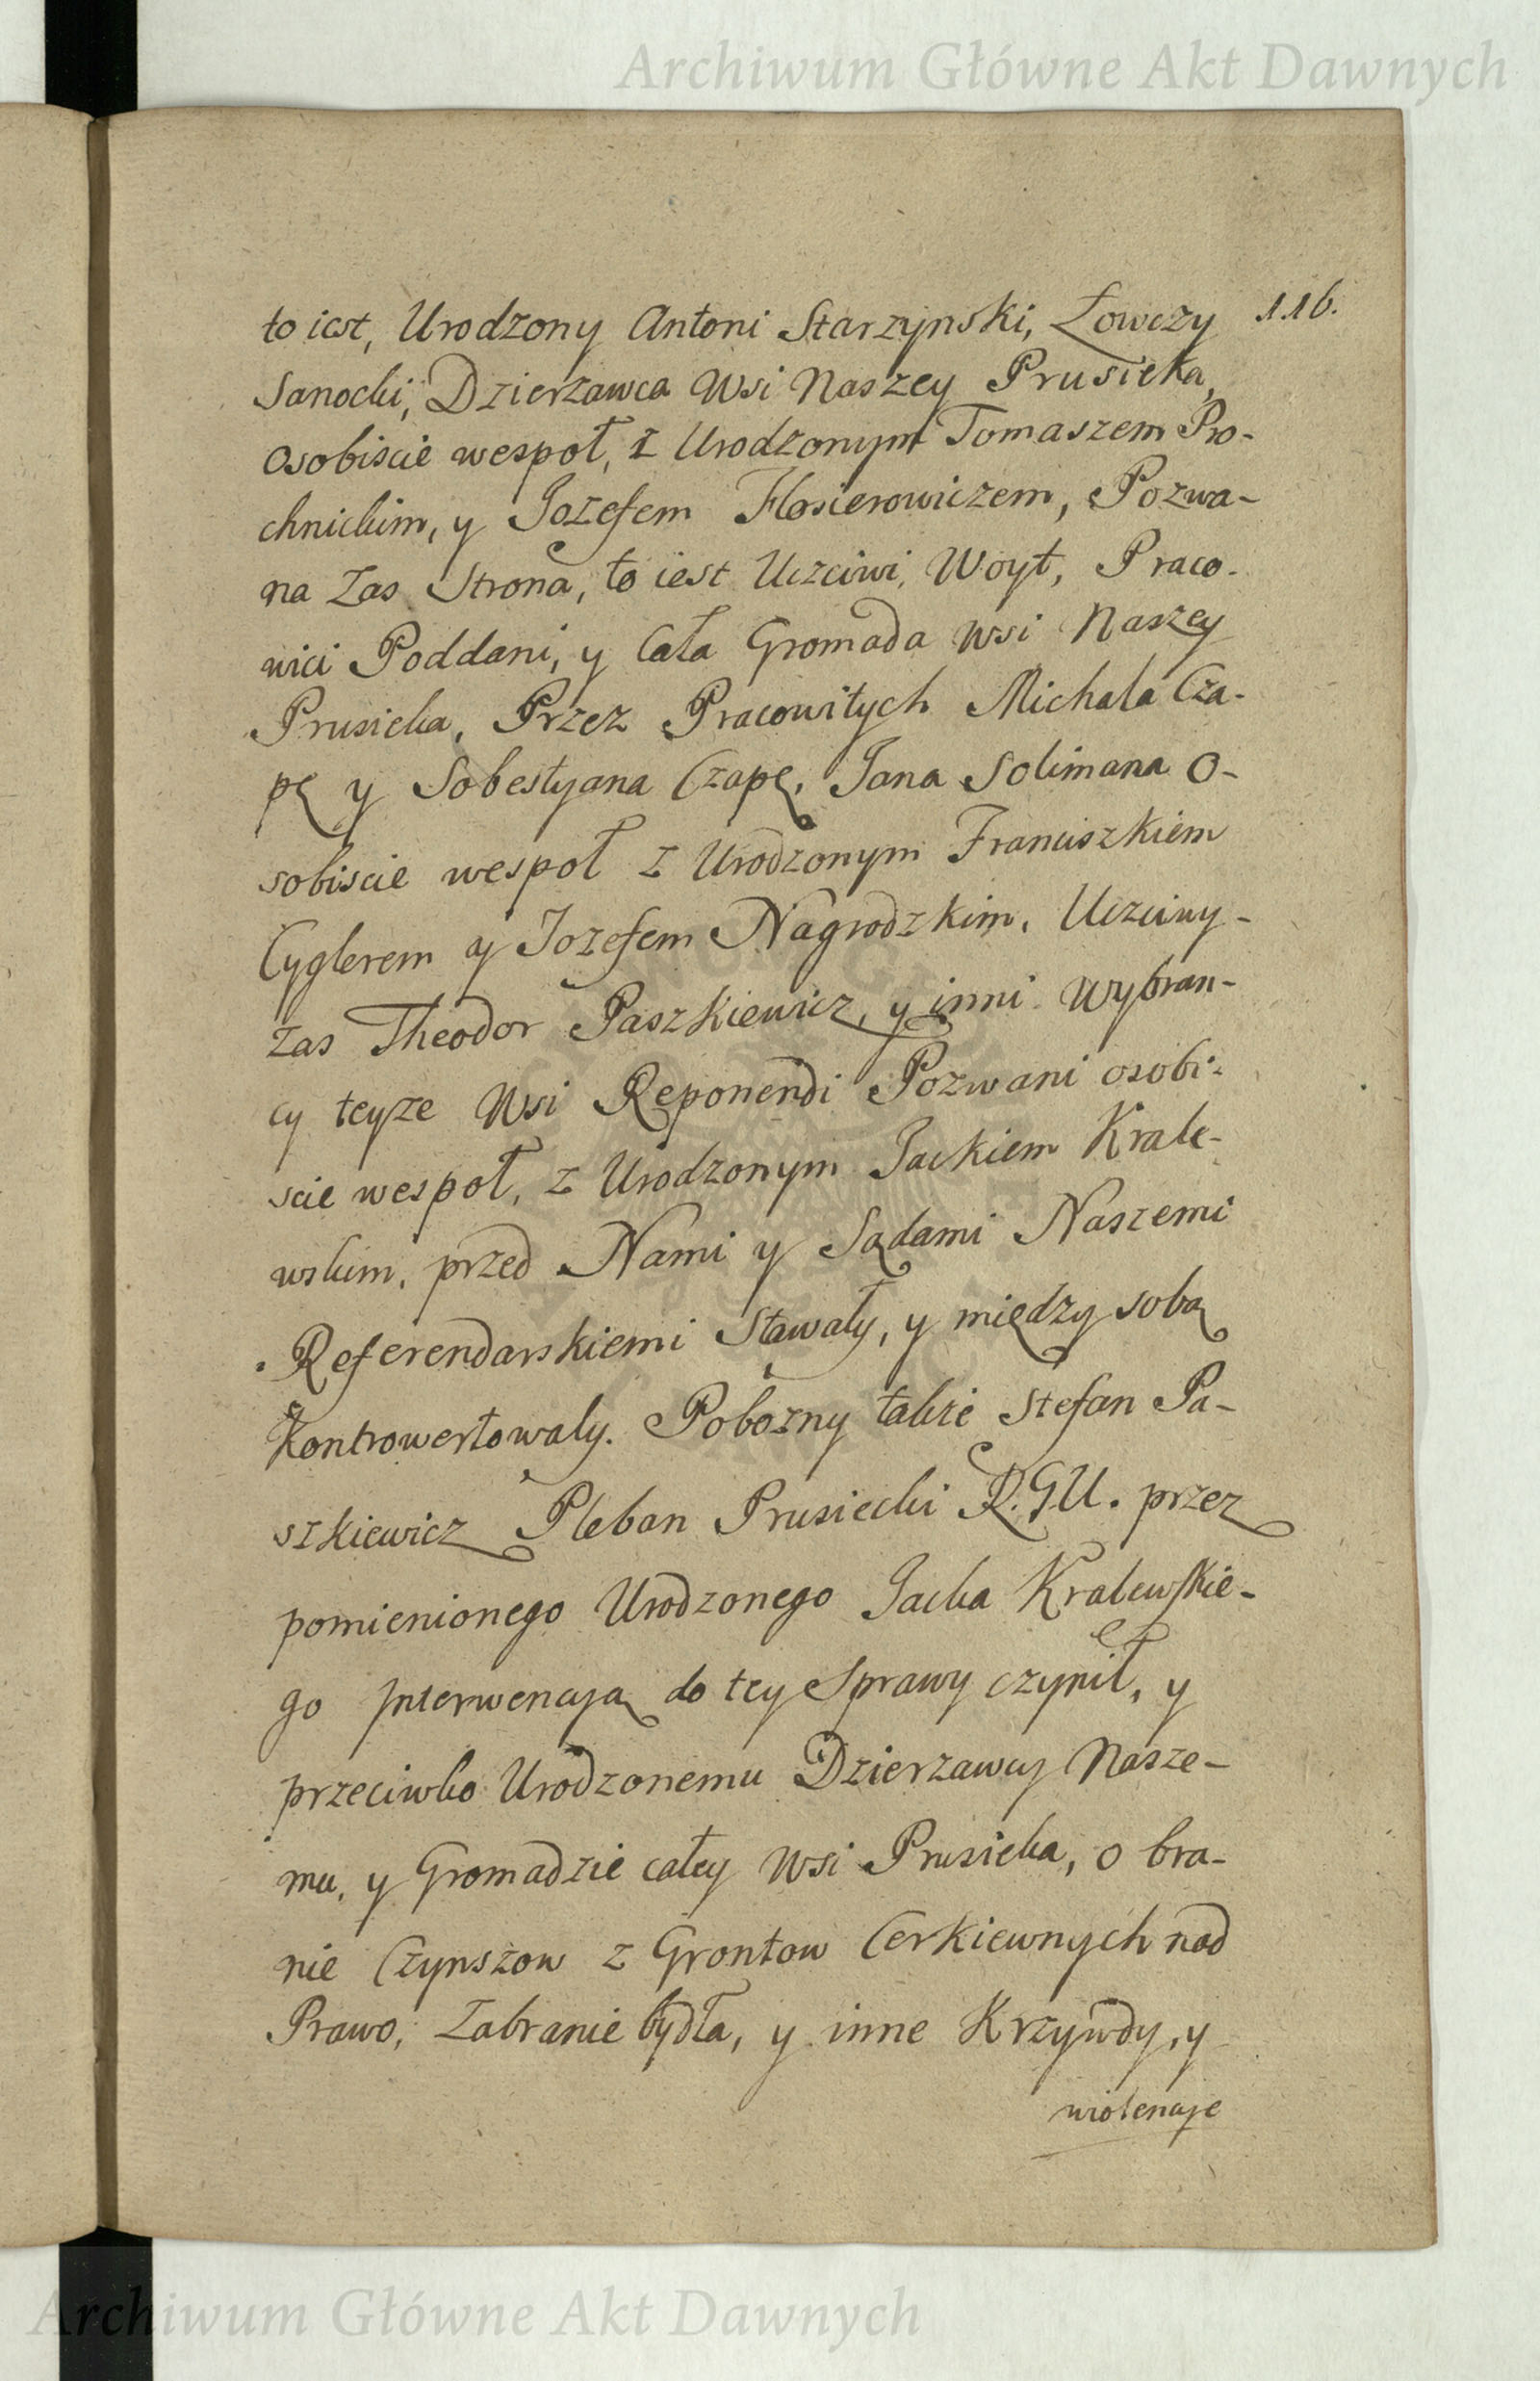 Archiwum Główne Akt Dawnych
116.
to iest, Urodzony Antoni Starzynski, Łowczy
Sanocki, Dzierzawca Wsi Naszey Prusieka,
Osobiscie wespoł, z Urodzonym Tomaszem Pro-
chnickim, y Jozefem Flosierowiczem, Pozwa-
na Zas Strona, to iest Uczciwi, Woyt, Praco-
wici Poddani, y Cała Gromada Wsi Naszey
Prusieka, Przez Pracowitych Michala Cza-
pę y Sobestyana Czapę, Jana Solimana O-
sobiscie wespoł z Urodzonym Franciszkiem
Cyglerem y Jozefem Nagrodzkim, Uczciwy-
zas Theodor Paszkiewicz, y inni Wybran-
cy teyze Wsi Reponendi Pozwani osobi-
scie wespoł, z Urodzonym Jackiem Krale-
wskim, przed Nami y Sądami Naszemi
Referendarskiemi Stawały, y między sobą
Kontrowertowały. Pobozny takze Stefan Pa-
szkiewicz Pleban Prusiecki R.G.U. przez
pomienionego Urodzonego Jacka Kralewskie-
go Jnterwencyą do tey Sprawy czynił, y
przeciwko Urodzonemu Dzierzawcy Nasze-
mu, y Gromadzie całey Wsi Prusieka, o bra-
nie Czynszow z Grontow Cerkiewnych nad
Prawo, Zabranie bydła, y inne Krzywdy, y
wiolencye
Archiwum Główne Akt Dawnych